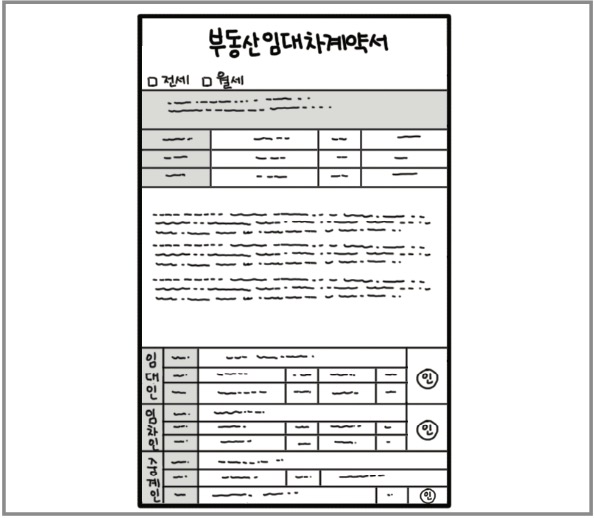 부동산임대차계약서
□ 전세 □ 월세
임대인
인
임차인
인
중계인
인